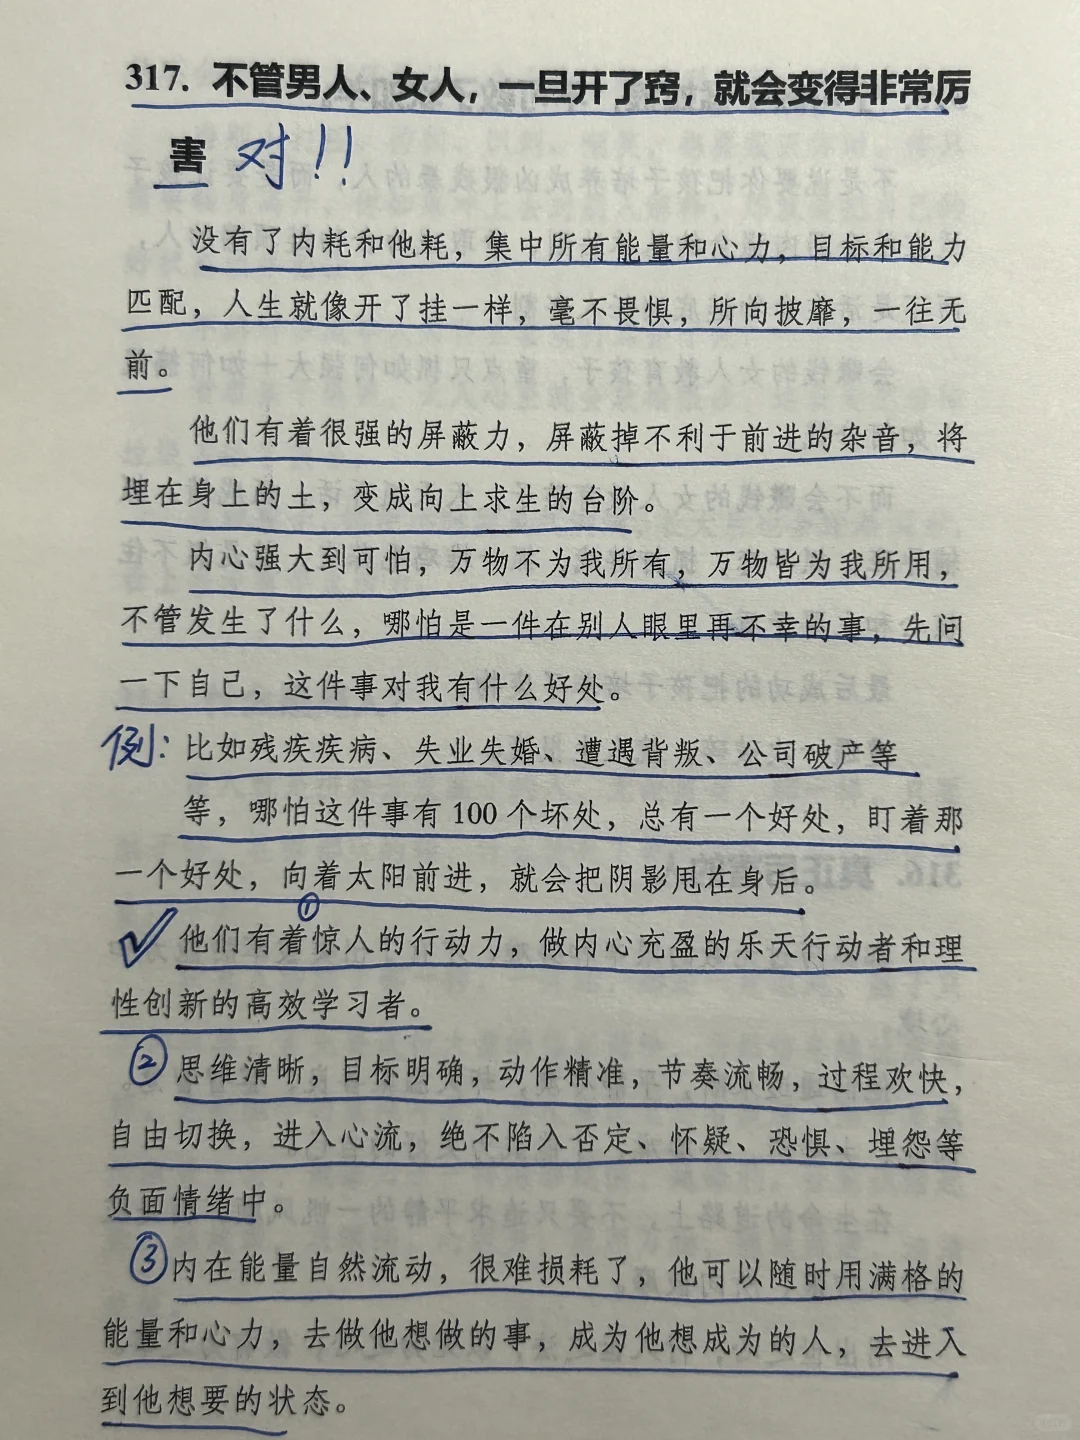 317. 不管男人、女人，一旦开了窍，就会变得非常厉
害 对!!
没有了内耗和他耗，集中所有能量和心力，目标和能力
匹配，人生就像开了挂一样，毫不畏惧，所向披靡，一往无
前。
他们有着很强的屏蔽力，屏蔽掉不利于前进的杂音，将
埋在身上的土，变成向上求生的台阶。
内心强大到可怕，万物不为我所有，万物皆为我所用，
不管发生了什么，哪怕是一件在别人眼里再不幸的事，先问
一下自己，这件事对我有什么好处。
例：比如残疾疾病、失业失婚、遭遇背叛、公司破产等
等，哪怕这件事有 100 个坏处，总有一个好处，盯着那
一个好处，向着太阳前进，就会把阴影甩在身后。
①
✓他们有着惊人的行动力，做内心充盈的乐天行动者和理
性创新的高效学习者。
②思维清晰，目标明确，动作精准，节奏流畅，过程欢快，
自由切换，进入心流，绝不陷入否定、怀疑、恐惧、埋怨等
负面情绪中。
③内在能量自然流动，很难损耗了，他可以随时用满格的
能量和心力，去做他想做的事，成为他想成为的人，去进入
到他想要的状态。